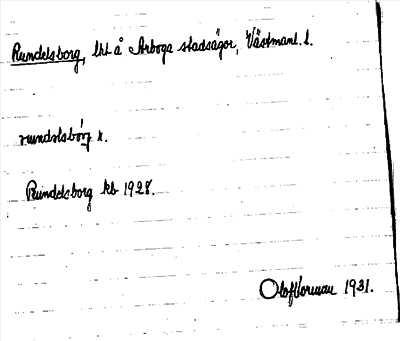 Rundelsborg, lht å Arboga stadsägor, Västmanl. l.
rundəlsbórj r.
Rundelsborg kb 1928.
Olof Vorman 1931.